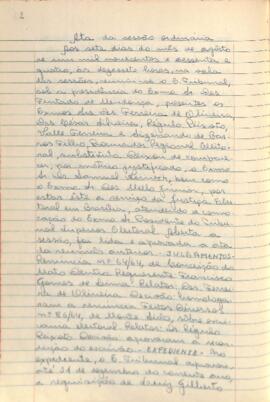 Ata da sessão ordinária
Aos sete dias do mês de agôsto
de um mil novecentos e sessenta e
quatro, às dezessete horas, na sala
das sessões, reuniu-se o E. Tribunal,
sob a presidência do Exmo. Sr. Des.
Furtado de Mendonça, presentes os
Exmos. Srs. Des. Ferreira de Oliveira,
Drs. César Silveira, Régulo Peixoto,
Valle Ferreira e
Filho, Procurador Regional Eleito-
ral, substituto. Deixou de compare-
cer, por motivo justificado, o Exmo.
Sr. Dr. bem como
o Exmo. Sr. Des. Mello Junior, por
estar êste a serviço da Justiça Eleito-
ral em Brasília, atendendo a convo-
cação do Exmo. Sr. Presidente do Tribu-
nal Superior Eleitoral. Aberta a
sessão, foi lida e aprovada a ata
da reunião anterior. - JULGAMENTOS -
Renúncia nº 64/64, de Conceição do
Mato Dentro. Requerente: Francisco
Gomes de Lima. Relator: Des. Ferrei-
ra de Oliveira. Decisão: homologa-
ram a renúncia. Feitos Diversos
nº 86/64, de Monte Sião, sôbre escri-
vania eleitoral. Relator: Dr. Régulo
Peixoto. Decisão: aprovaram a
do escrivão. - EXPEDIENTE - No
expediente, o E. Tribunal aprovou
até 31 de dezembro do corrente ano,
a requisição de Gilberto